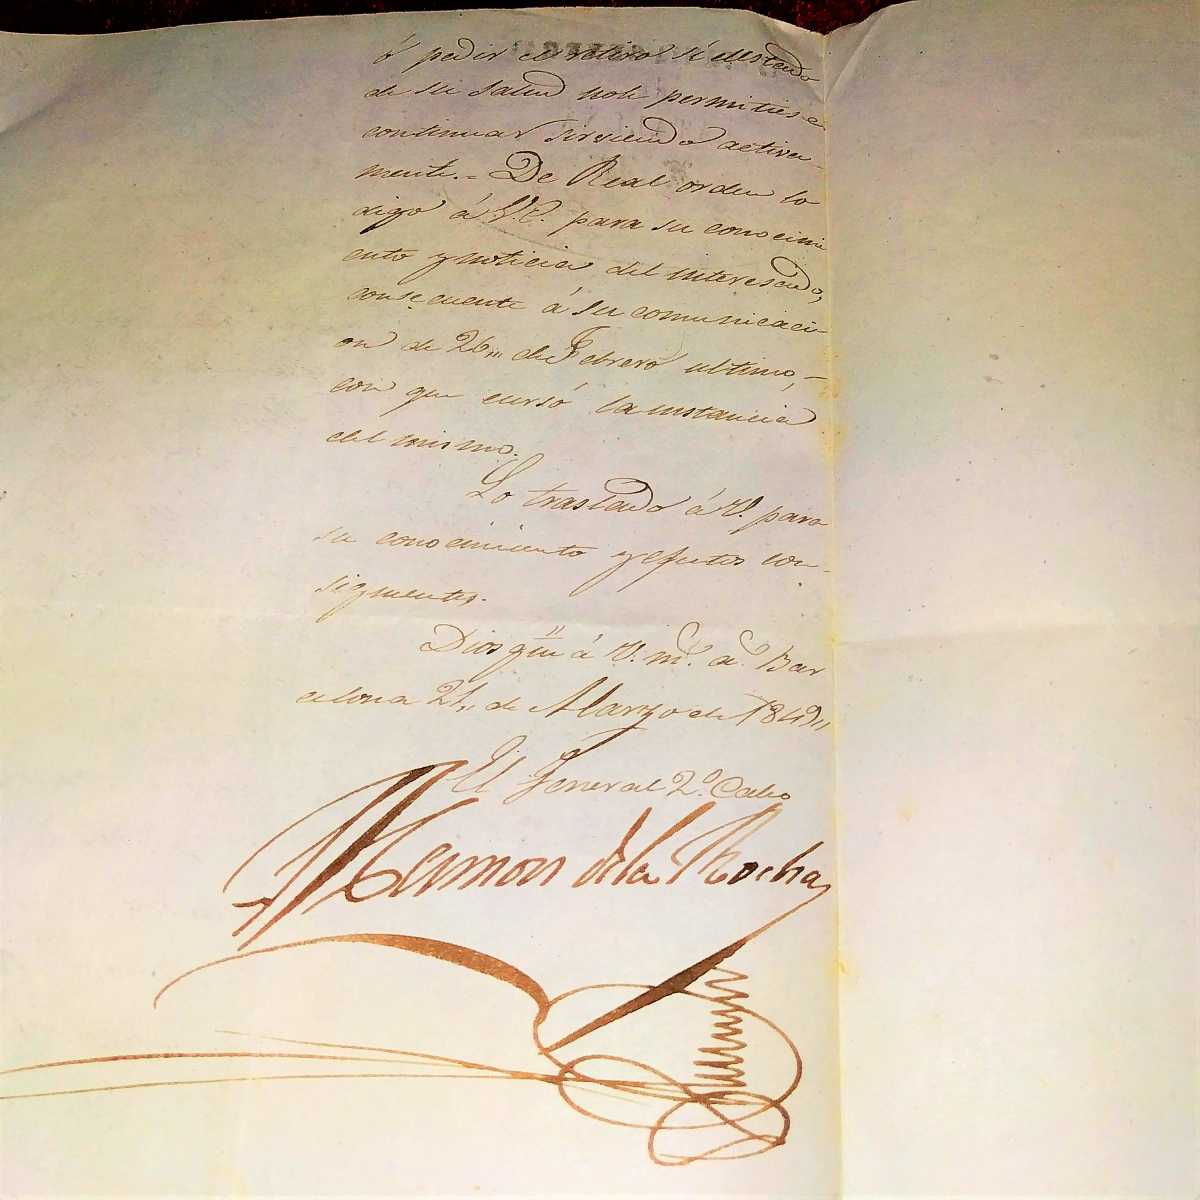 ó pedir el retiro si el estado
de su salud no le permitiese
continuar sirviendo activa-
mente.- De Real orden lo
digo á V.E. para su conocimi
ento y noticia del interesado,
consecuente á su comunicaci
on de 26,, de Febrero ultimo,-
con que cursó la instancia
del mismo.
Lo traslado á V. para
su conocimiento y efectos con-
siguientes.
Dios gue á V. ms. as. Bar
celona 21,, de Marzo de 1849,,
El General 2º. Cabo
Ramon de la Rocha